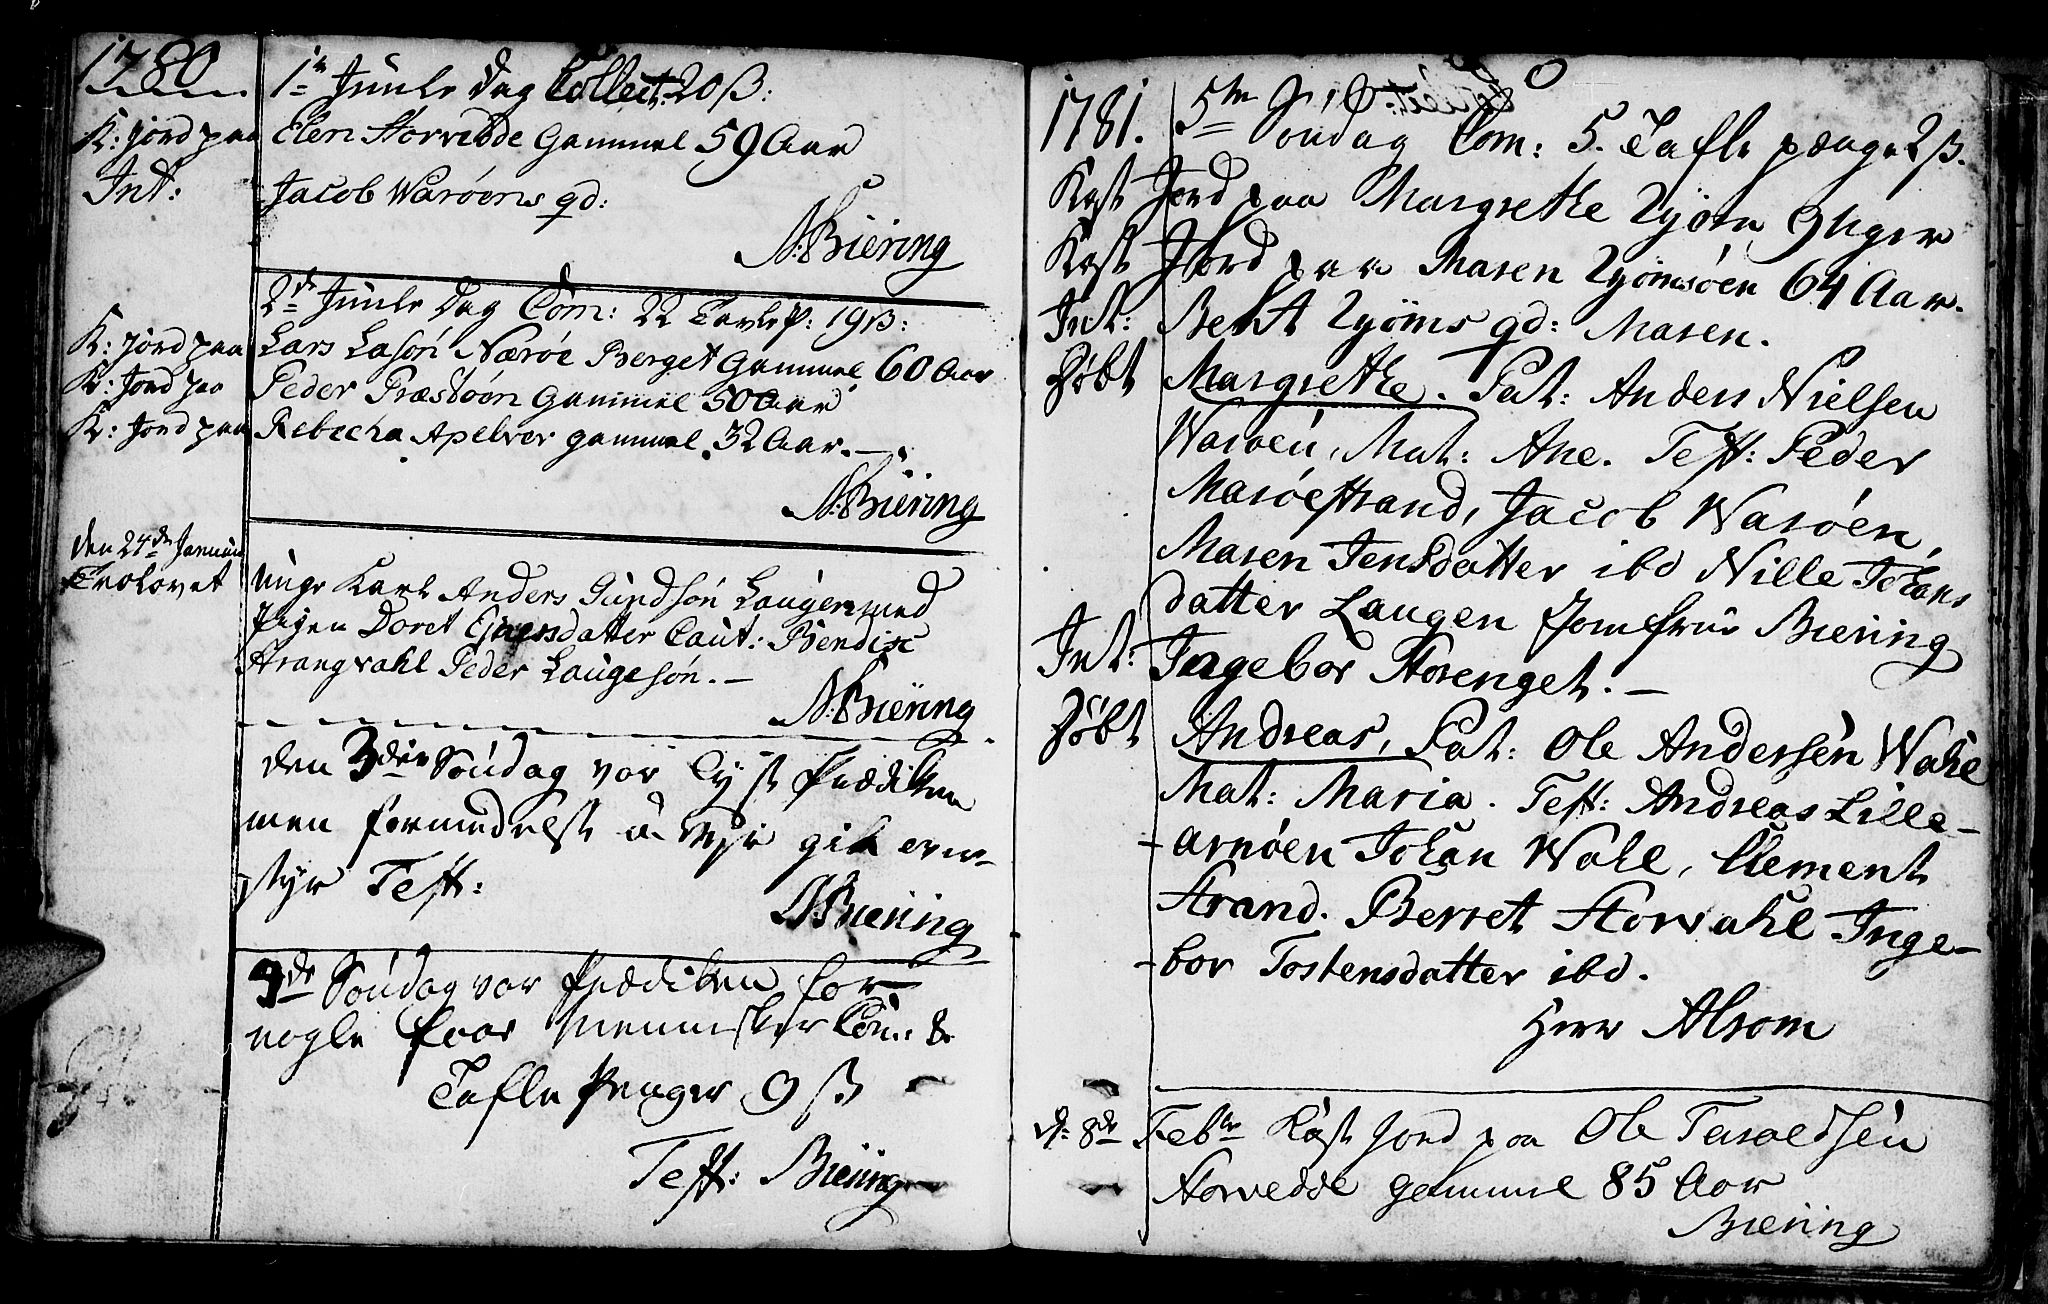 1780
1te Juule Dag Collect: 20 ß:
K: jord paa Elen Storvedde Gammel 59 Aar
Int: Jacob Warøens qd:
N: Biering
2de Juule Dag Com: 22 Tavle p: 19 ß:
K: jord paa Lars Lasøn Nærøe Berget Gammel 60 Aar
K: Jord paa Peder Præstøön Gammel 50 Aar
K: Jord paa Rebecha Apelvær gammel 32 Aar. —
N: Biering
den 24de Januari
Trolovet Unge Karl Anders Gundsøn Laugen med
Pigen Doret Ejnersdatter Caut: Bendix
Strangvahl Peder Laugesøn. —
N: Biering
den 3die Søndag var lyst Prædiken
men formedelst u veyr gik
Test:
Biering
3de Søndag var Prædiken for
nogle faar Mennisker Com: 8
Tafle Penger 9 ß
Test: Biering
1781. 5te Søndag Com: 5. Tafle penge 2 ß.
Kast Jord paa Margrethe Lyøm 9 Uger
Kast Jord paa Maren Lyömsöen 64 Aar.
Int: Beht Lyöms qd: Maren.
Døbt Margrethe. Pat: Anders Nielsen
Warøen, Mat: Ane. Test: Peder
Marøestrand, Jacob Warøen,
Maren Jensdatter ibd Nille Johans
datter Laugen Jomfrue Biering
Int: Ingebor Storenget. —
Døbt Andreas, Pat: Ole Andersen Wahl
Mat: Maria. Test: Andreas Lille-
-arnøen Johan Wahl, Clement
Strand. Berret Storvahl Inge-
-bor Tostensdatter ibd.
Herr Alsom
d: 8de Febr Kast Jord paa Ole Tarraldsen
Storvedde gammel 85 Aar
Biering